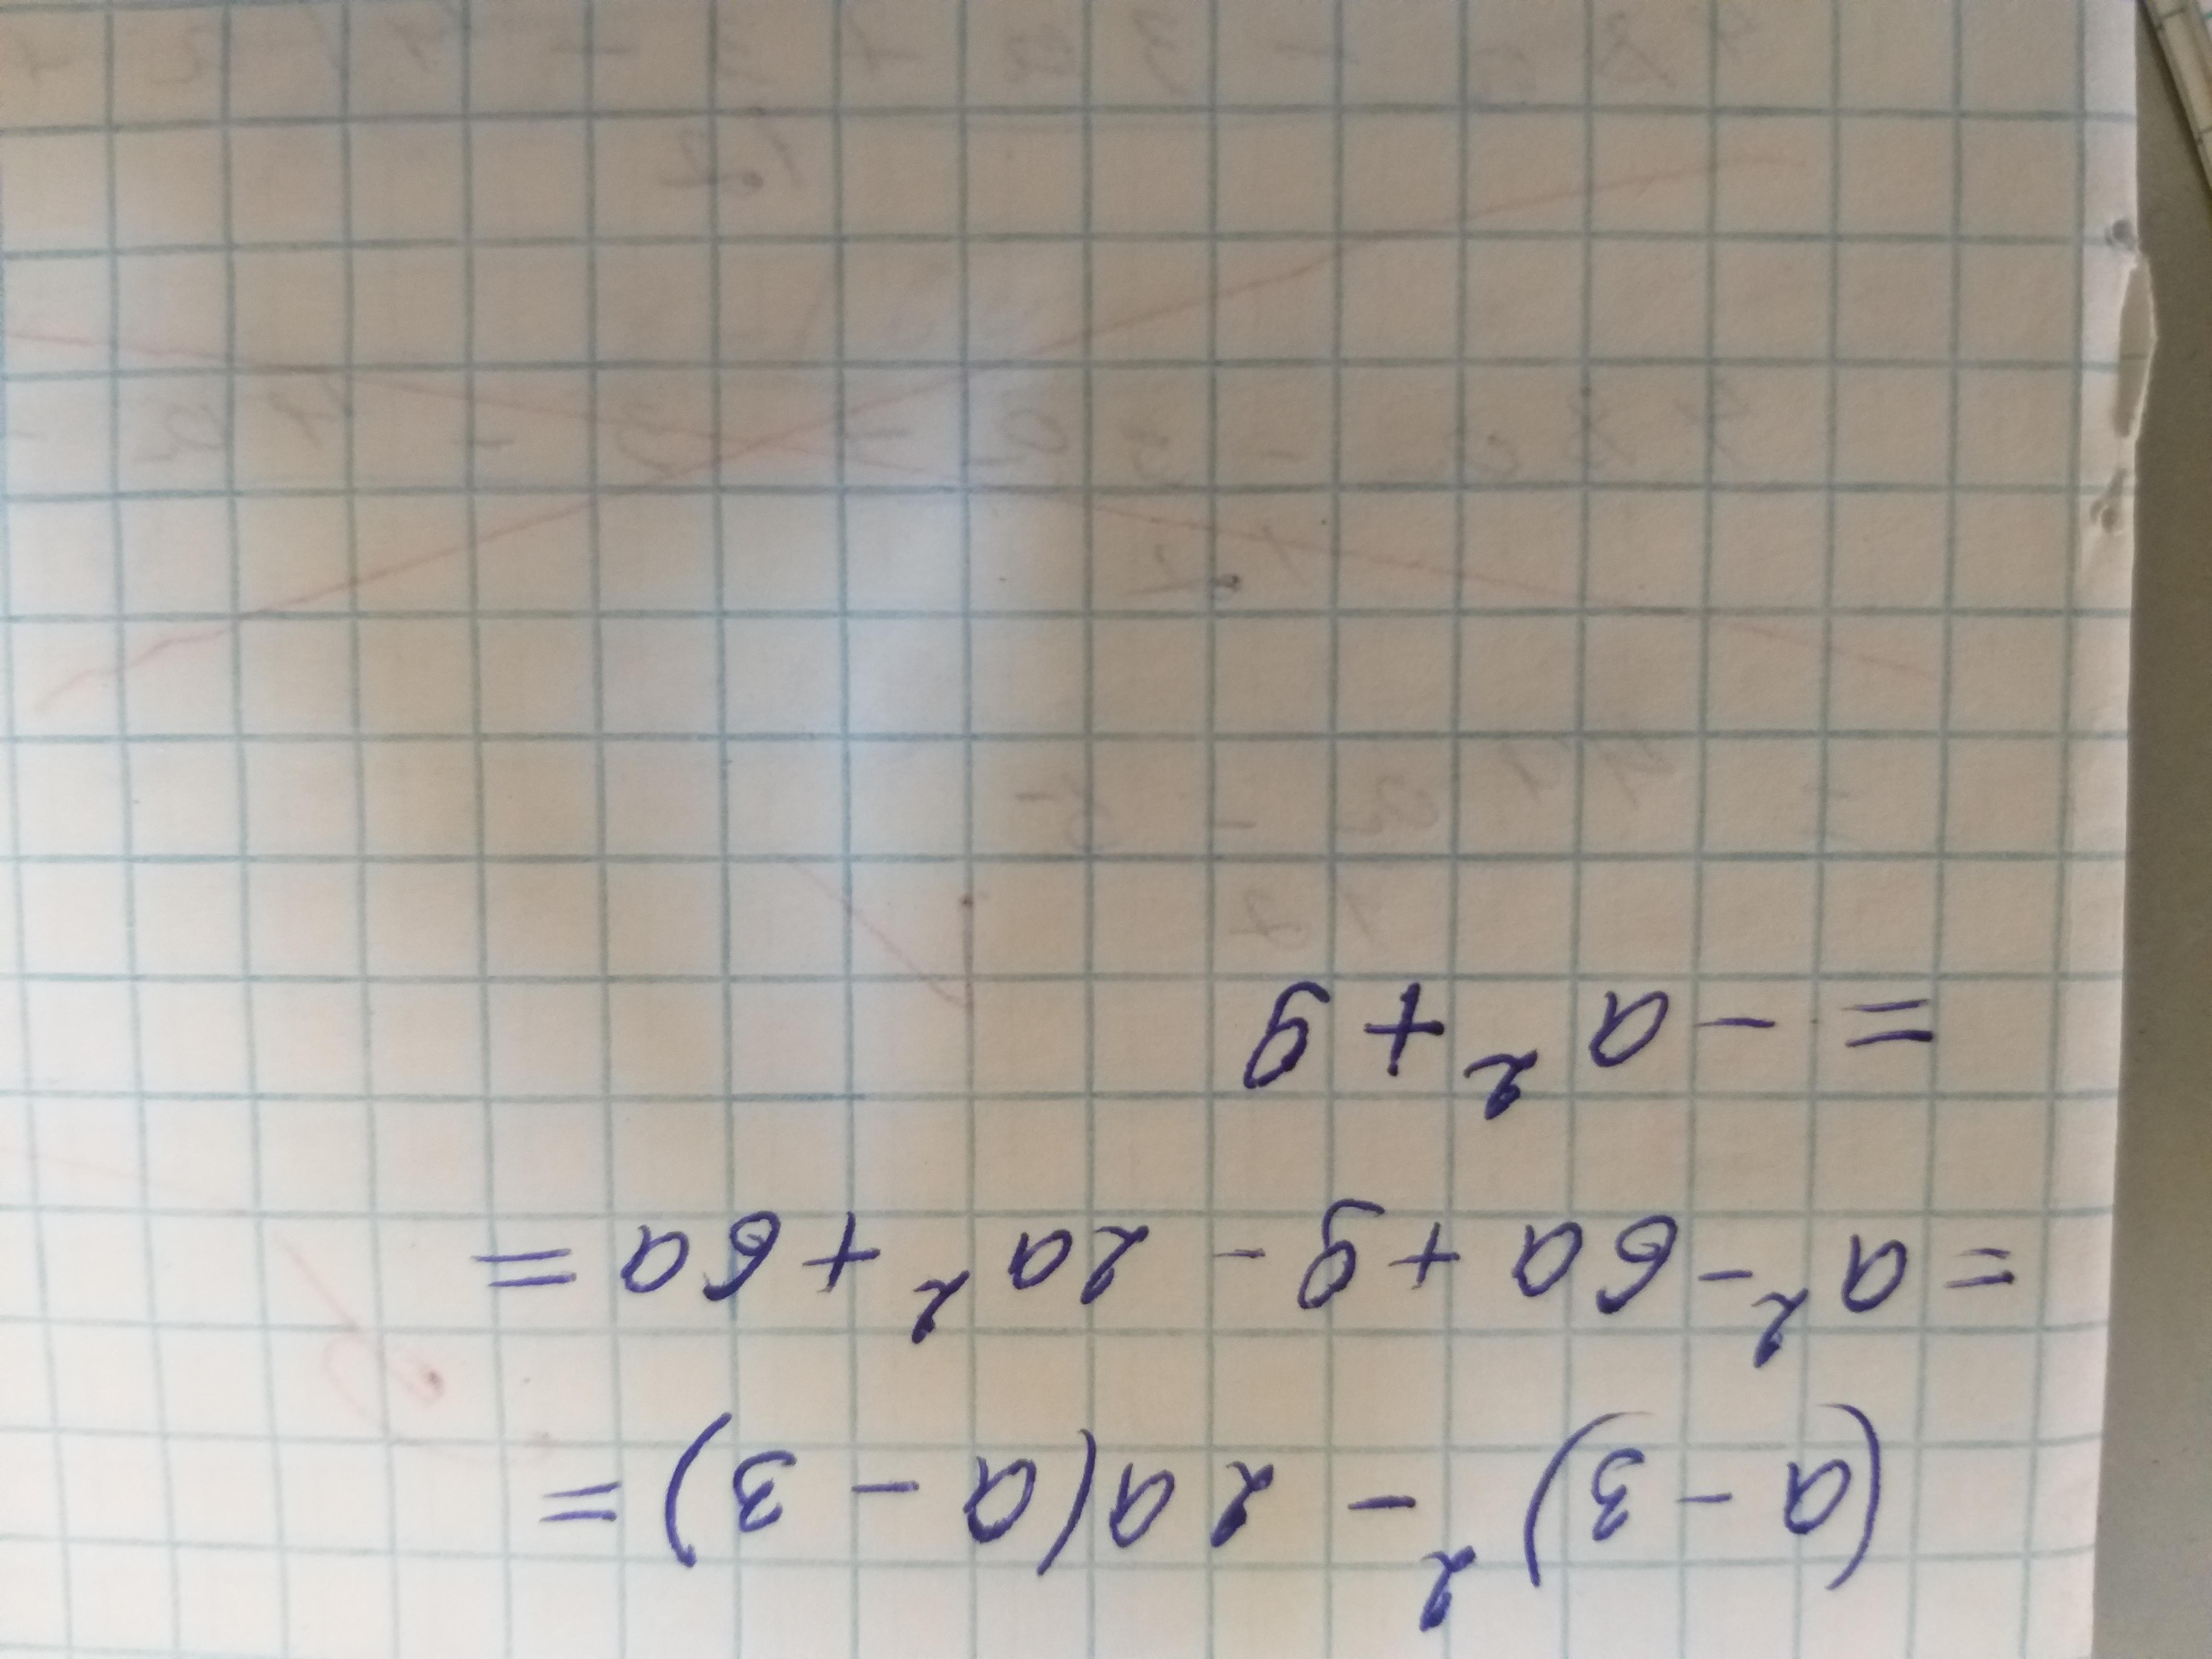 (a - 3)² - 2a(a - 3) =
= a² - 6a + 9 - 2a² + 6a =
= - a² + 9